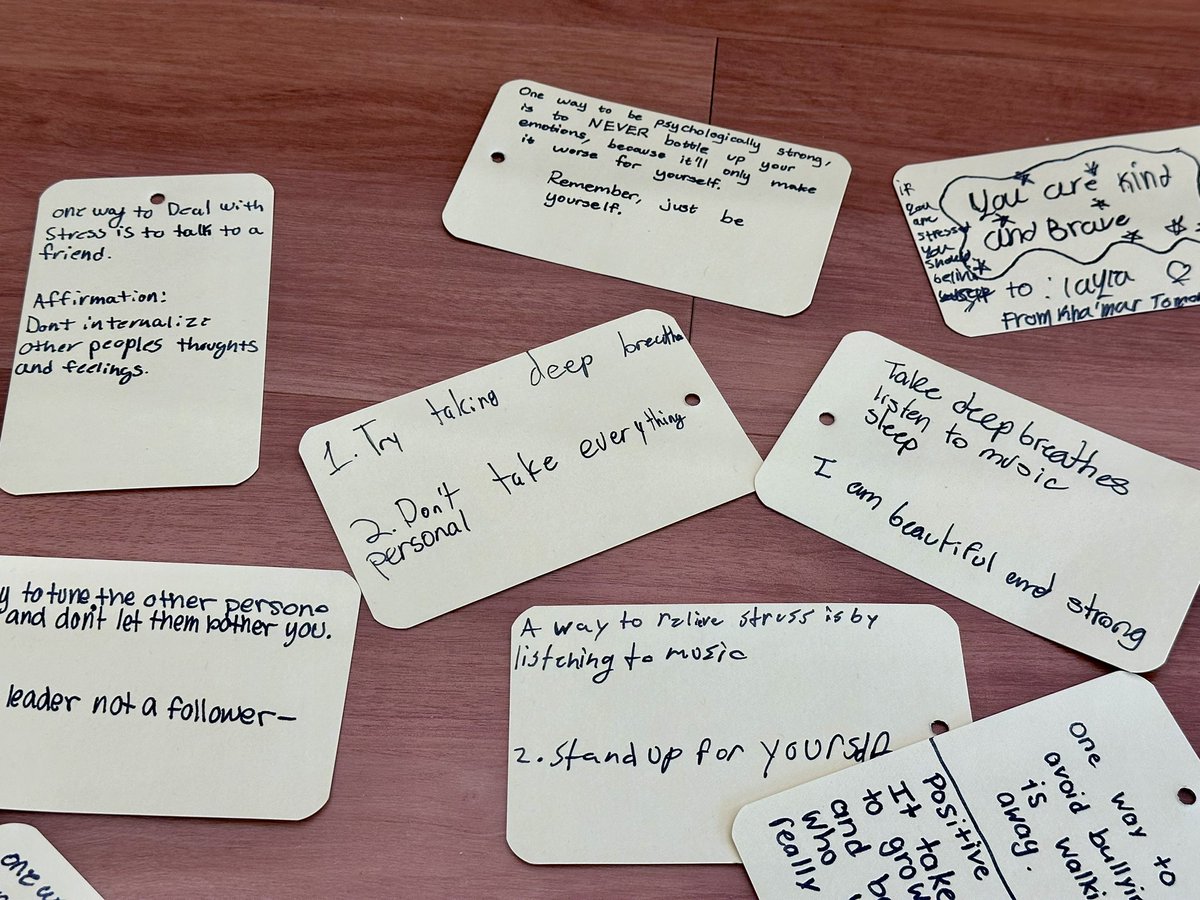 One way to be psychologically strong,
is to NEVER bottle up your
emotions, because it'll only make
it worse for yourself.
Remember, just be
yourself.
one way to Deal with
Stress is to talk to a
friend.
Affirmation:
Dont internalize
other peoples thoughts
and feelings.
if
you
are
You are kind
and Brave
to: layla
From Kha'mar
1. Try taking deep
2. Don't take everything
personal
Take deep breathes
listen to music
sleep
I am beautiful and strong
to tune the other person
and don't let them bother you.
leader not a follower-
A way to relive stress is by
listening to music
2. Stand up for
one way to
avoid
is
away.
Positive
It take
to
and
who
really
one